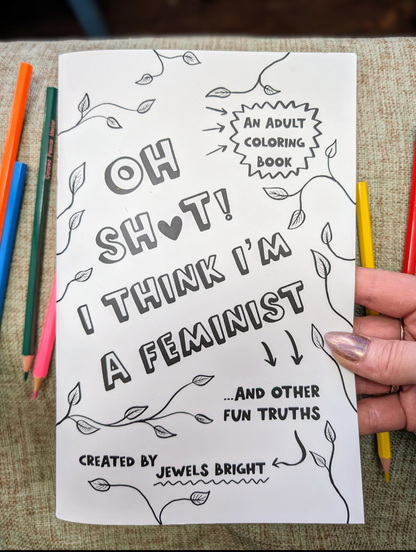 OH
SH♥T!
I THINK I'M
A FEMINIST
AN ADULT
COLORING
BOOK
...AND OTHER
FUN TRUTHS
CREATED BY JEWELS BRIGHT